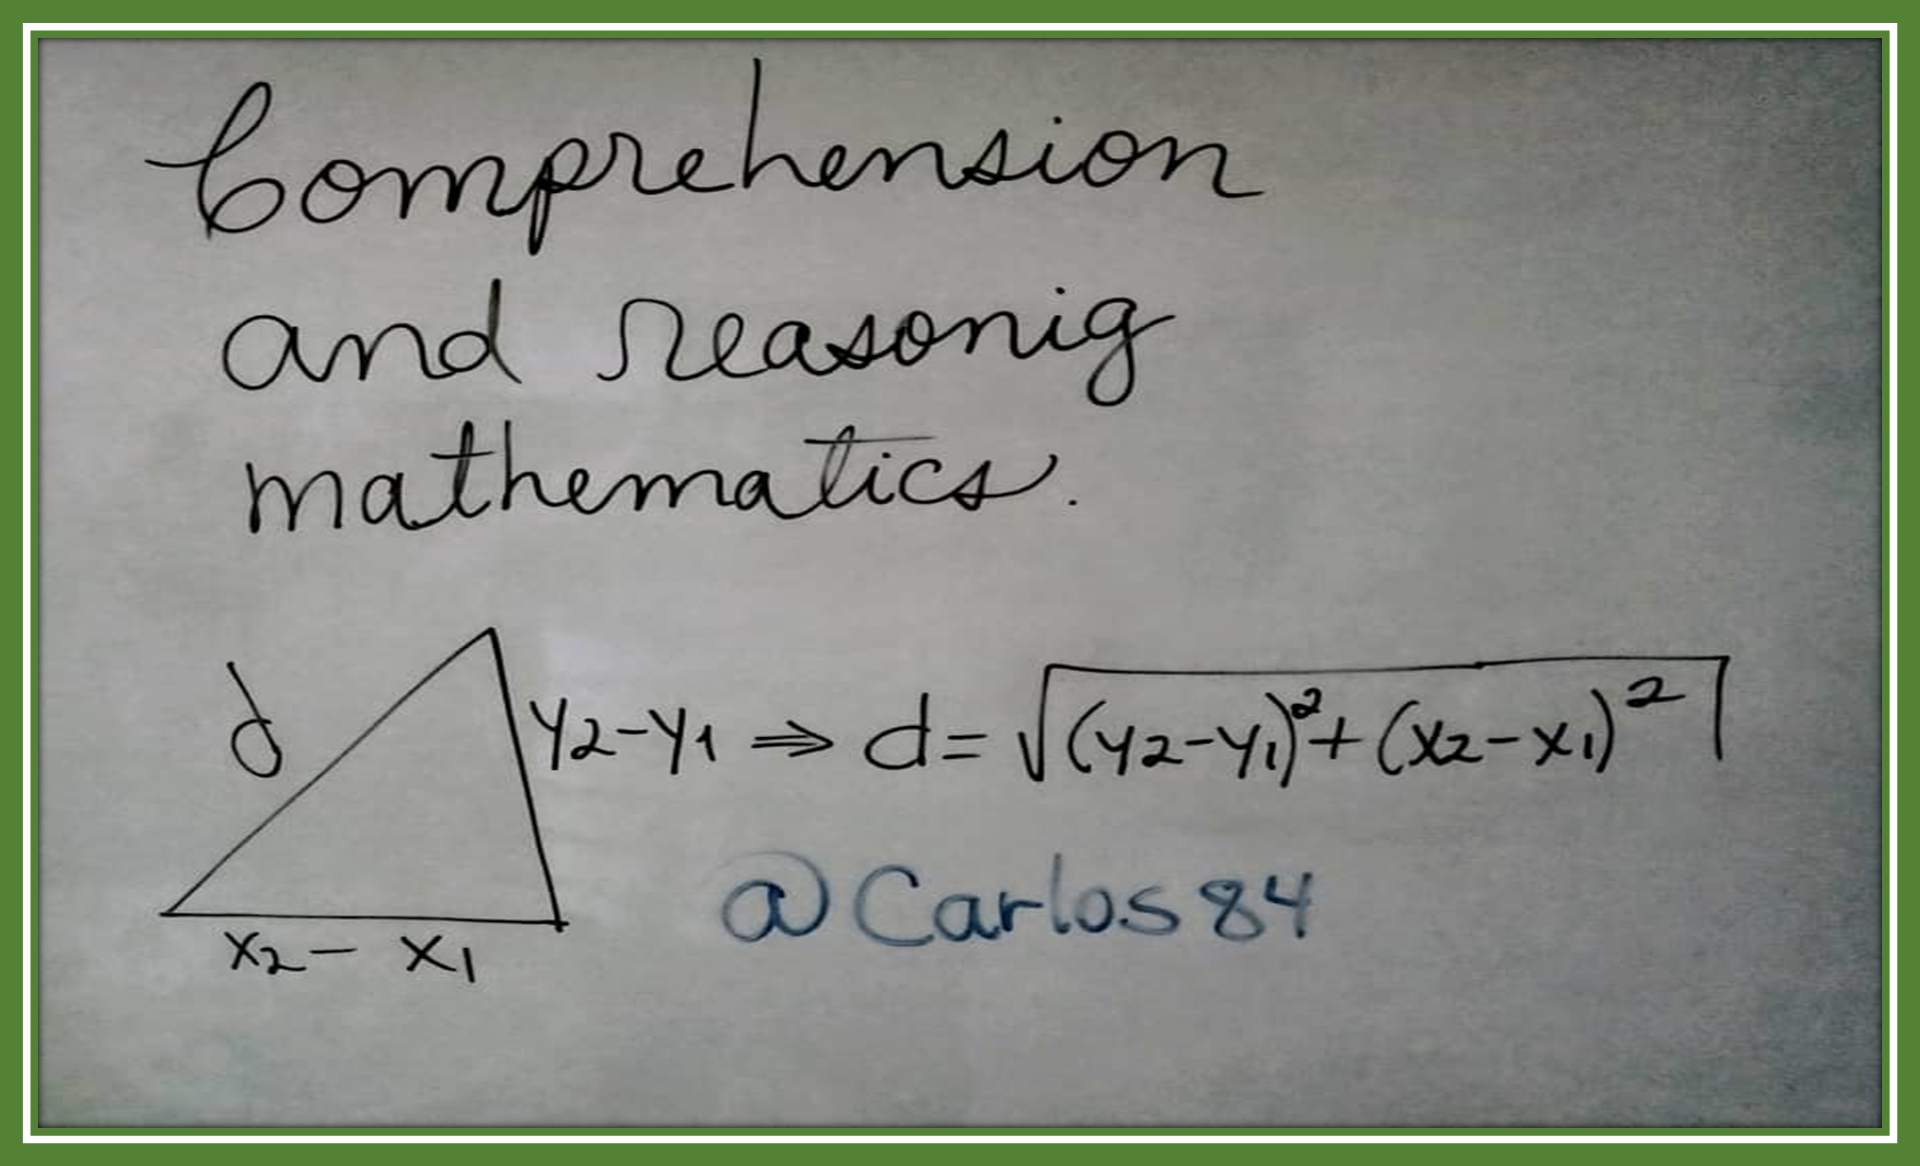 Comprehension
and reasonig
mathematics.
d
y2-y1 ⇒ d= √(y2-y1)²+(x2-x1)²
x2- x1
@Carlos84